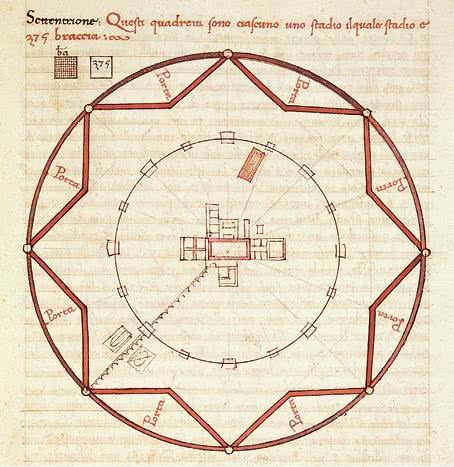 Settentrione: Questi quadretti sono ciascuno uno stadio ilquale stadio e
375 braccia :
ba
375
Porta
Porta
Porta
Porta
Porta
Porta
Porta
Porta